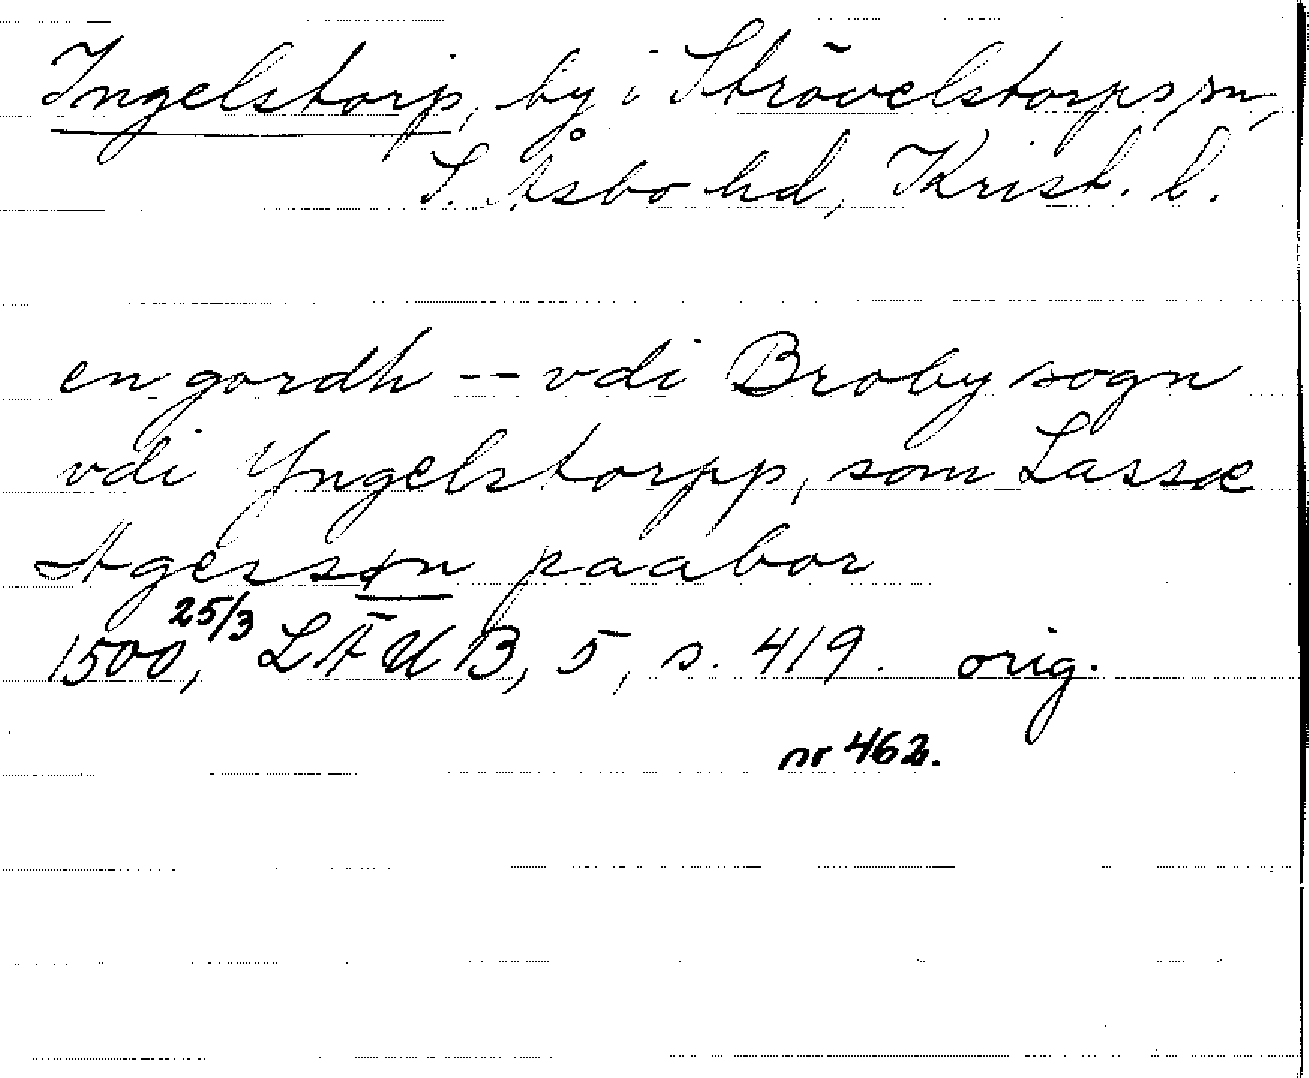 Ingelstorp, by i Strövelstorps sn,
S. Åsbo hd, Krist. l.
en gordh -- vdi Broby sogn
vdi Yngelstorpp, som Lassæ
Agerssøn paabor
1500, 25/3 LÄUB, 5, s. 419. orig.
nr 462.